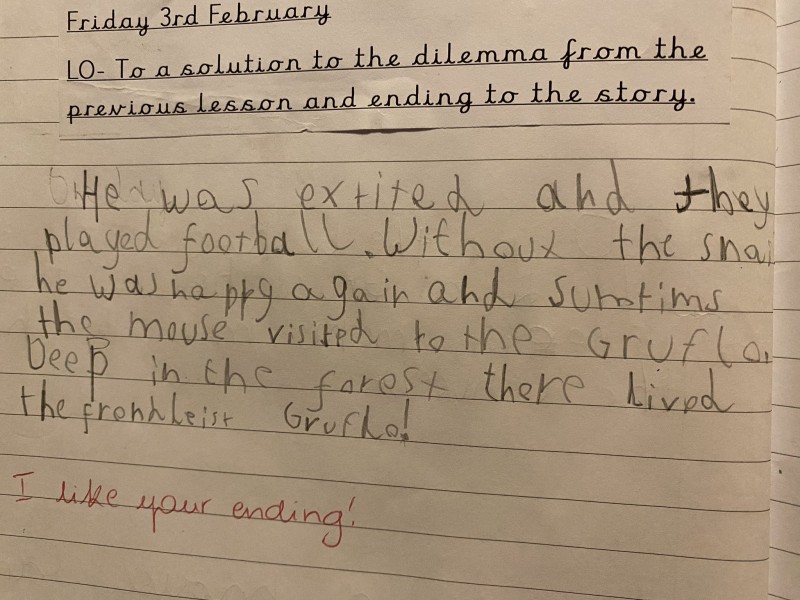 Friday 3rd February
LO- To a solution to the dilemma from the
previous lesson and ending to the story.
He was extited and they
played football. Without the snai
he was happy again and sumtims
the mouse visited to the Gruflo.
Deep in the forest there lived
the frehhleist Gruflo!
I like your ending!